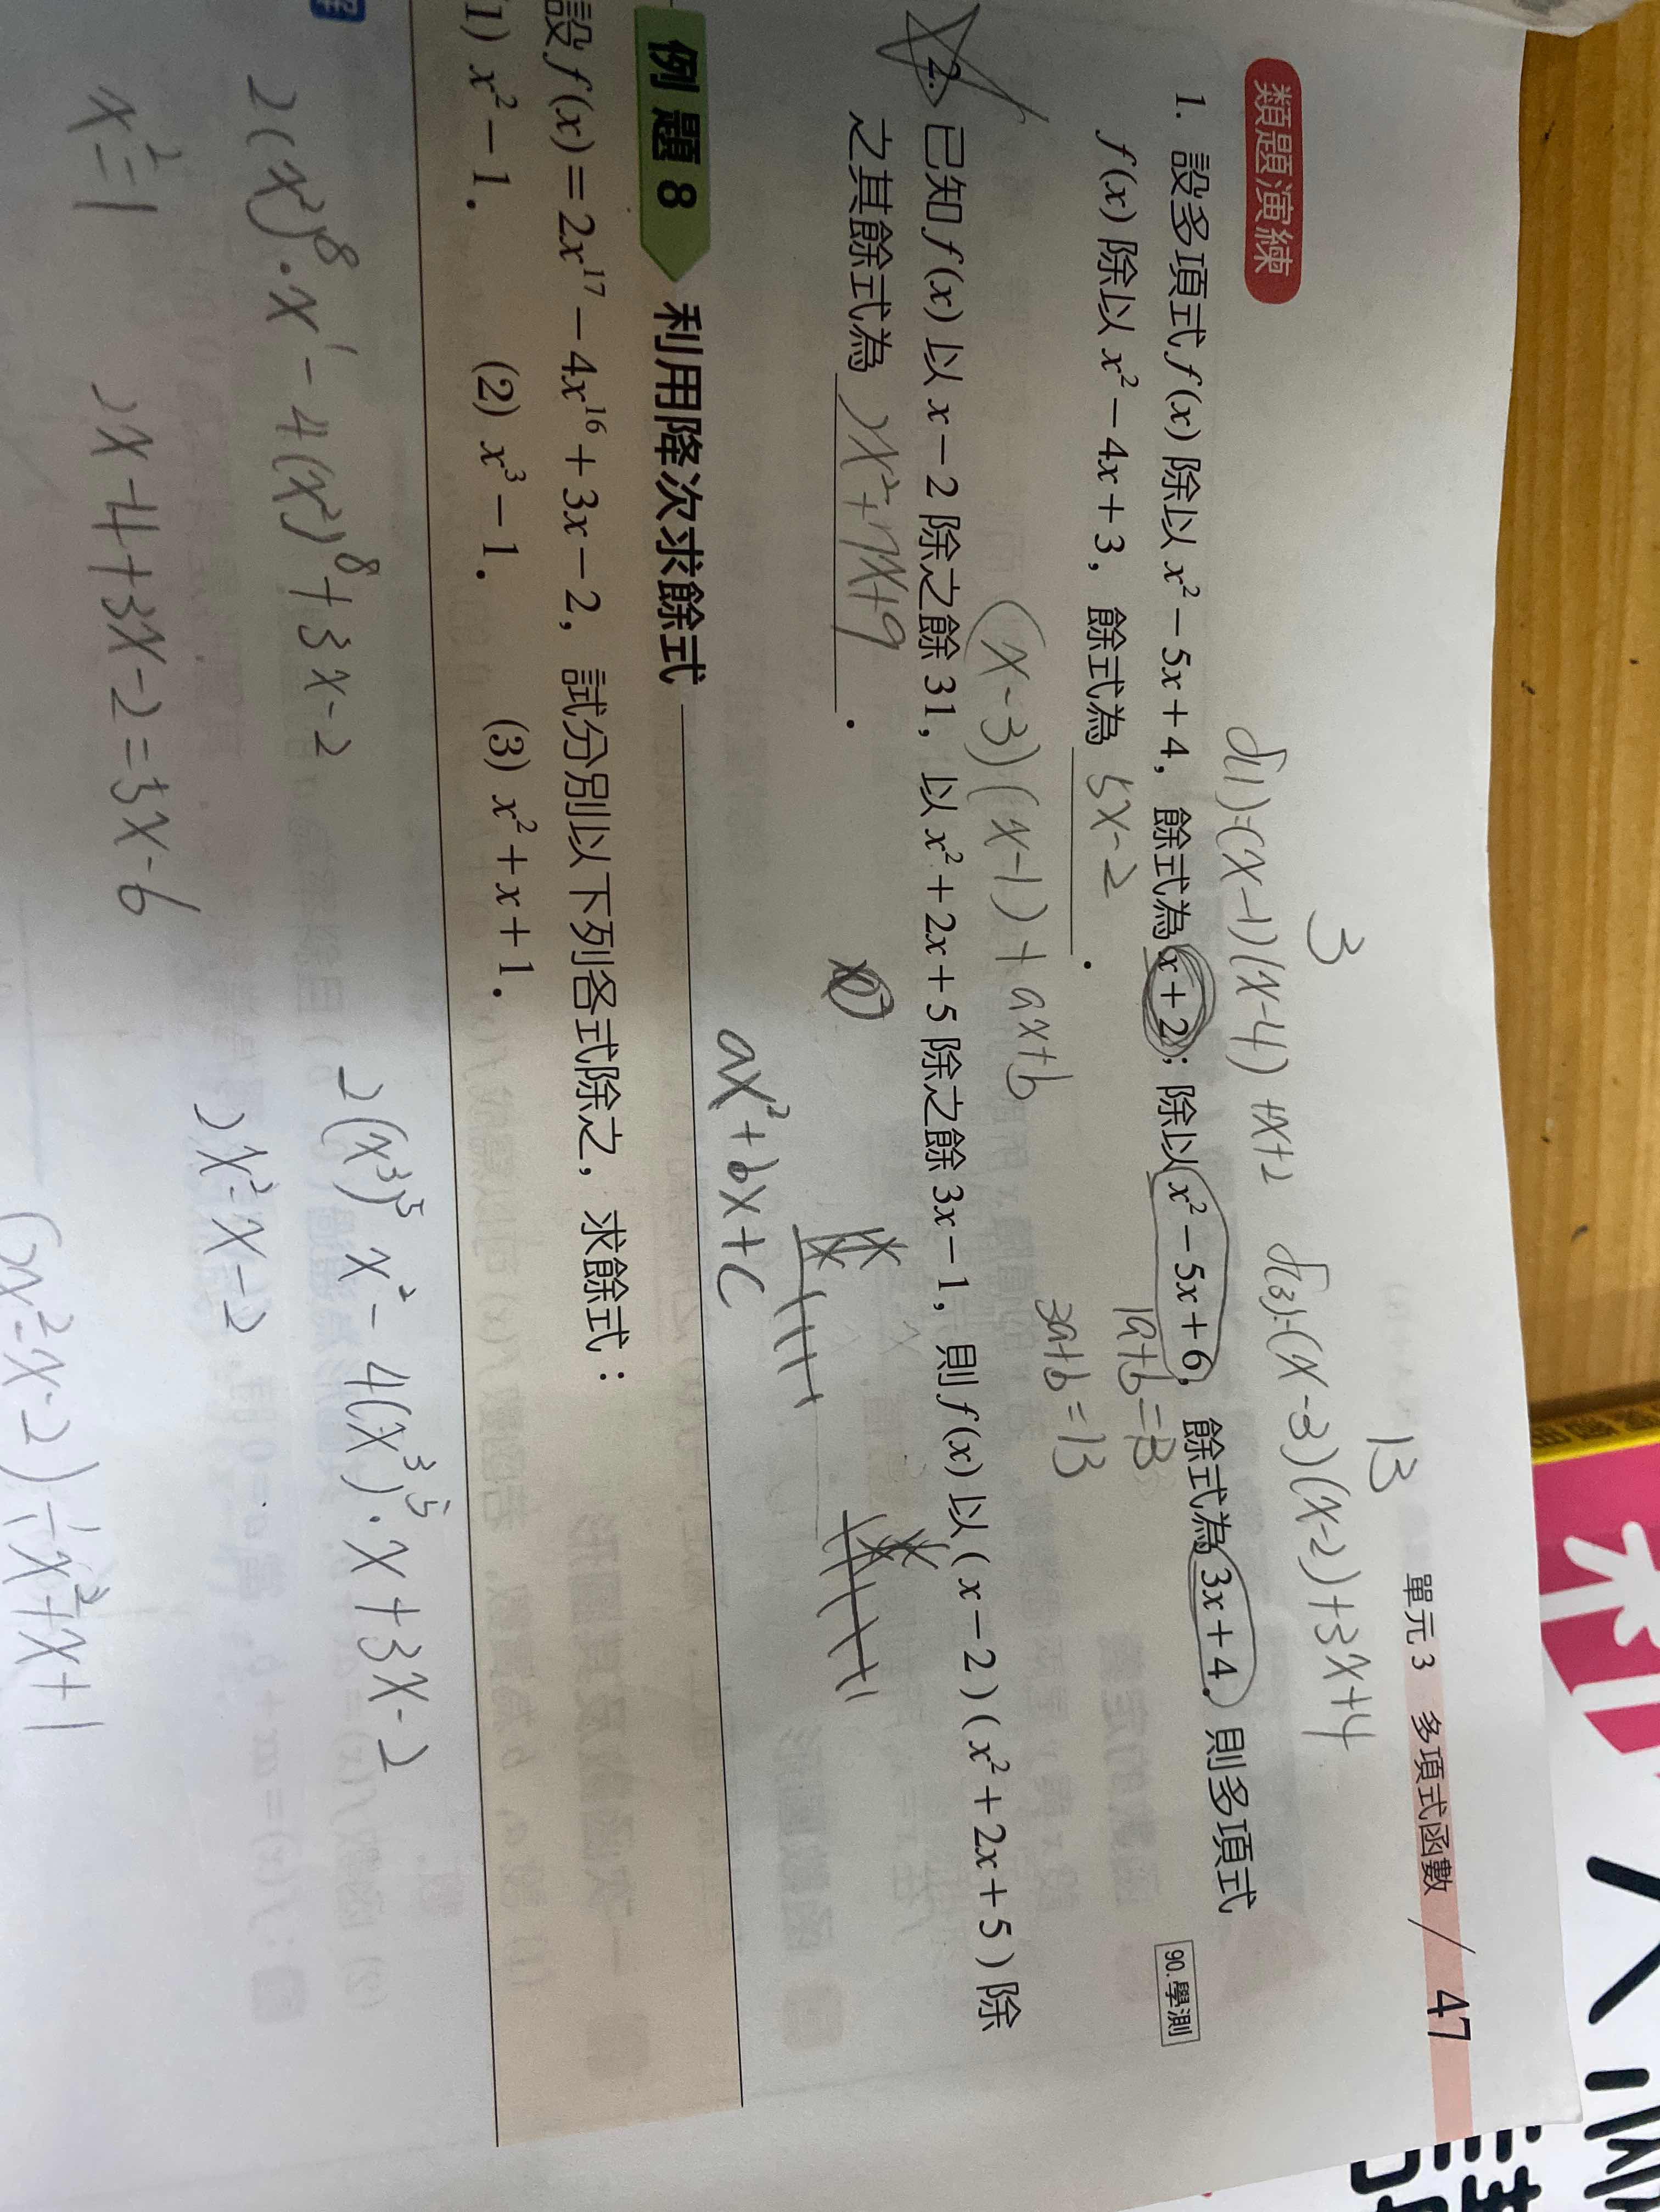 單元 3 多項式函數 / 47
類題演練
3
13
f(1)=(x-1)(x-4)+x+2 f(3)=(x-3)(x-2)+3x+4
1. 設多項式 f(x) 除以 x² − 5x + 4，餘式為 x + 2；除以 x² − 5x + 6，餘式為 3x + 4．則多項式
f(x) 除以 x² − 4x + 3，餘式為 5x-2 ．
90.學測
1a+b=3
3a+b=13
(x-3)(x-1)+ax+b
2. 已知 f(x) 以 x − 2 除之餘 31，以 x² + 2x + 5 除之餘 3x − 1，則 f(x) 以 (x − 2)(x² + 2x + 5) 除
之其餘式為 2x²+7x+9 ．
ax²+bx+c
例題 8 利用降次求餘式
設 f(x) = 2x¹⁷ − 4x¹⁶ + 3x − 2，試分別以下列各式除之，求餘式：
1) x² − 1． (2) x³ − 1． (3) x² + x + 1．
2(x²)⁸·x¹-4(x²)⁸+3x-2
2(x³)⁵x²-4(x³)⁵·x+3x-2
x²=1
2x-4+3x-2=5x-6
2x²-x-2
(2x²-x-2)÷x²+x+1